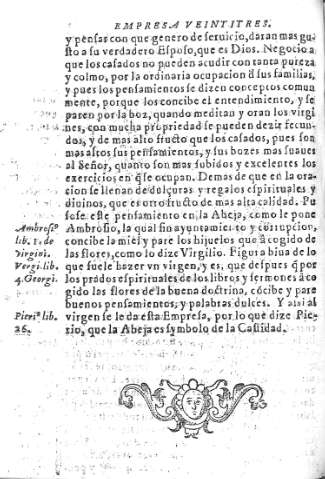 EMPRESA VEINTITRES.
y pensar con que genero de seruicio, daran mas gus-
to a su verdadero Esposo, que es Dios. Negocio a
que los casados no pueden acudir con tanta pureza
y colmo, por la ordinaria ocupacion d̃ sus familias,
y pues los pensamientos se dizen conceptos comun
mente, porque los concibe el entendimiento, y se
paren por la boz, quando meditan y oran los virgi
nes, con mucha propriedad se pueden dezir fecun-
dos, y de mas alto fructo que los casados, pues son
mas altos sus pensamientos, y sus bozes mas suaues
al Señor, quanto son mas subidos y excelentes los
exercicios en q̃ se ocupan. Demas de que en la ora-
cion se llenan de dulçuras y regalos espirituales y
diuinos, que es otro fructo de mas alta calidad. Pu
sose este pensamiento en la Abeja, como le pone
Ambrosio, la qual sin ayuntamiento y corrupcion,
concibe la miel y pare los hijuelos que á cogido de
las flores, como lo dize Virgilio. Figura biua de lo
que suele hazer vn virgen, y es, que despues q̃ por
los prados espirituales de los libros y sermones á co
gido las flores de la buena doctrina, cõcibe y pare
buenos pensamientos, y palabras dulces. Y assi al
virgen se le da esta Empresa, por lo que dize Pie-
rio, que la Abeja es symbolo de la Castidad.
Ambrosiº
lib. 1. de
virgini.
Vergi. lib.
4. Georgi.
Pieriº lib.
26.